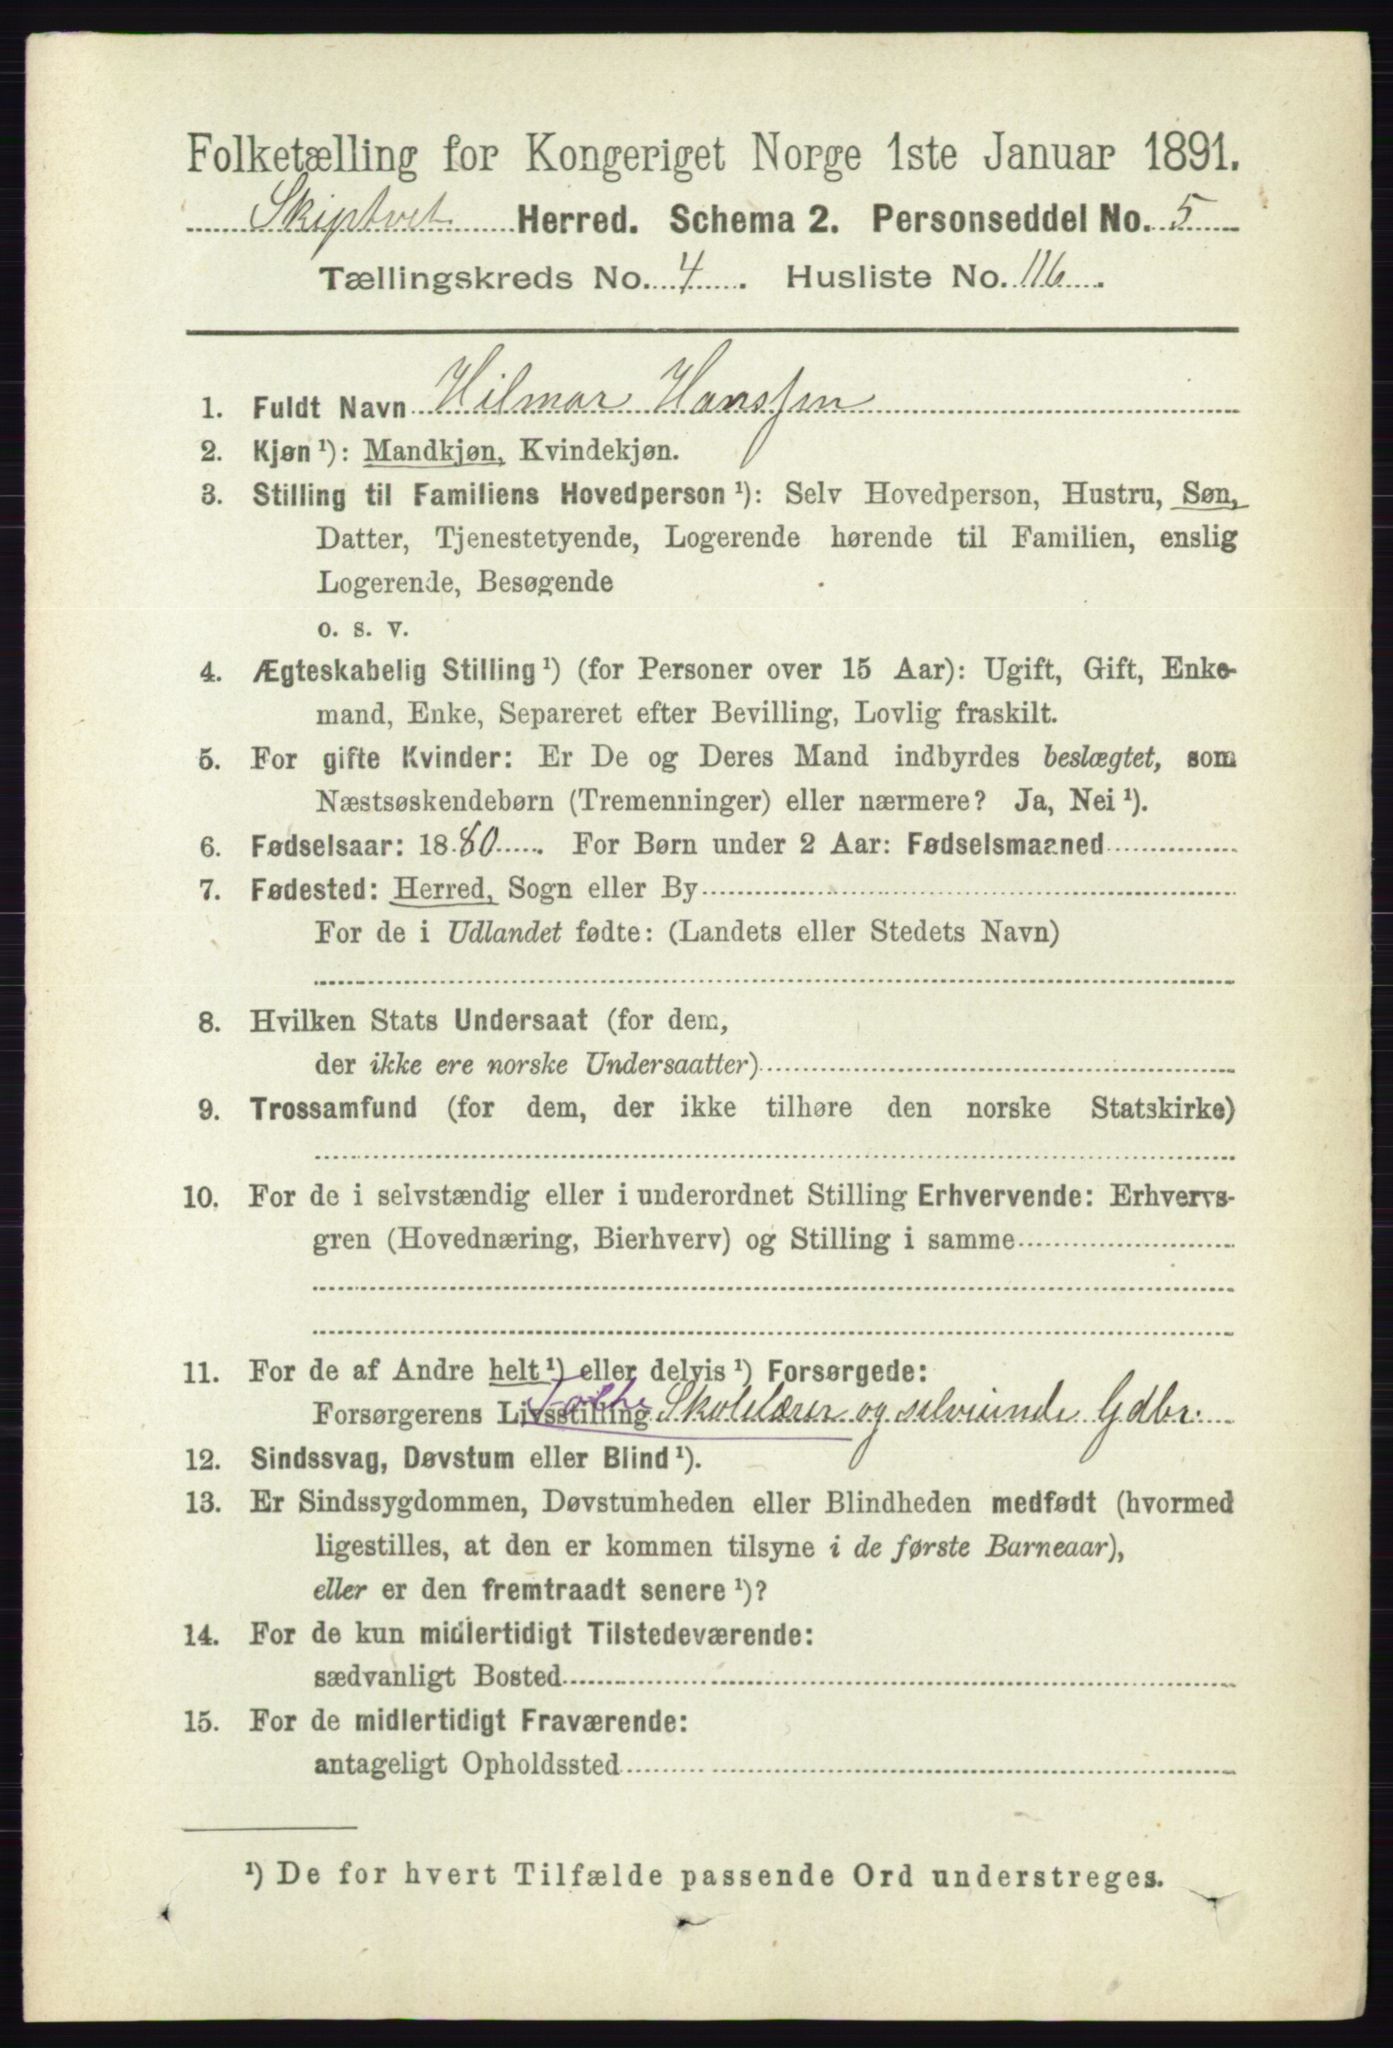 Folketælling for Kongeriget Norge 1ste Januar 1891.
Skiptvet Herred. Schema 2. Personseddel No. 5
Tællingskreds No. 4. Husliste No. 116.
1. Fuldt Navn Hilmar Hanssen
2. Kjøn ¹): Mandkjøn, Kvindekjøn.
3. Stilling til Familiens Hovedperson ¹): Selv Hovedperson, Hustru, Søn,
Datter, Tjenestetyende, Logerende hørende til Familien, enslig
Logerende, Besøgende
o. s. v.
4. Ægteskabelig Stilling ¹) (for Personer over 15 Aar): Ugift, Gift, Enke-
mand, Enke, Separeret efter Bevilling, Lovlig fraskilt.
5. For gifte Kvinder: Er De og Deres Mand indbyrdes beslægtet, som
Næstsøskendebørn (Tremenninger) eller nærmere? Ja, Nei ¹).
6. Fødselsaar: 1880. For Børn under 2 Aar: Fødselsmaaned
7. Fødested: Herred, Sogn eller By
For de i Udlandet fødte: (Landets eller Stedets Navn)
8. Hvilken Stats Undersaat (for dem,
der ikke ere norske Undersaatter)
9. Trossamfund (for dem, der ikke tilhøre den norske Statskirke)
10. For de i selvstændig eller i underordnet Stilling Erhvervende: Erhvervs-
gren (Hovednæring, Bierhverv) og Stilling i samme
11. For de af Andre helt ¹) eller delvis ¹) Forsørgede:
Forsørgerens Livsstilling Skolelærer og selveiende Gdbr.
12. Sindssvag, Døvstum eller Blind ¹).
13. Er Sindssygdommen, Døvstumheden eller Blindheden medfødt (hvormed
ligestilles, at den er kommen tilsyne i de første Barneaar),
eller er den fremtraadt senere ¹)?
14. For de kun midlertidigt Tilstedeværende:
sædvanligt Bosted
15. For de midlertidigt Fraværende:
antageligt Opholdssted
¹) De for hvert Tilfælde passende Ord understreges.